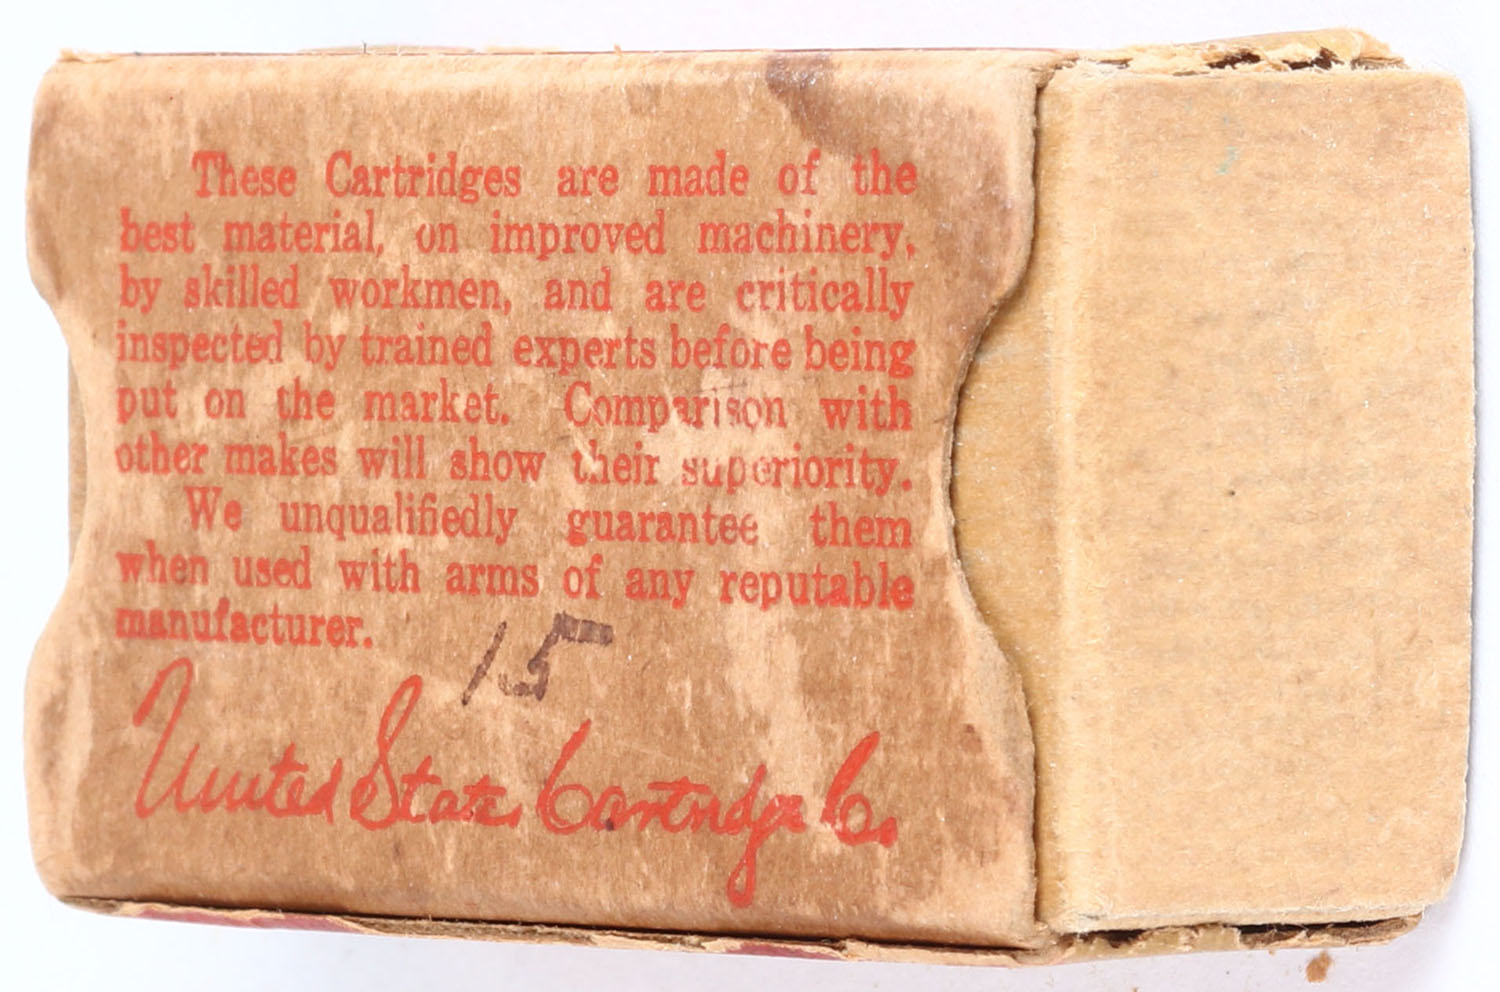 These Cartridges are made of the
best material, on improved machinery,
by skilled workmen, and are critically
inspected by trained experts before being
put on the market. Comparison with
other makes will show their superiority.
We unqualifiedly guarantee them
when used with arms of any reputable
manufacturer.
15
United States Cartridge Co.